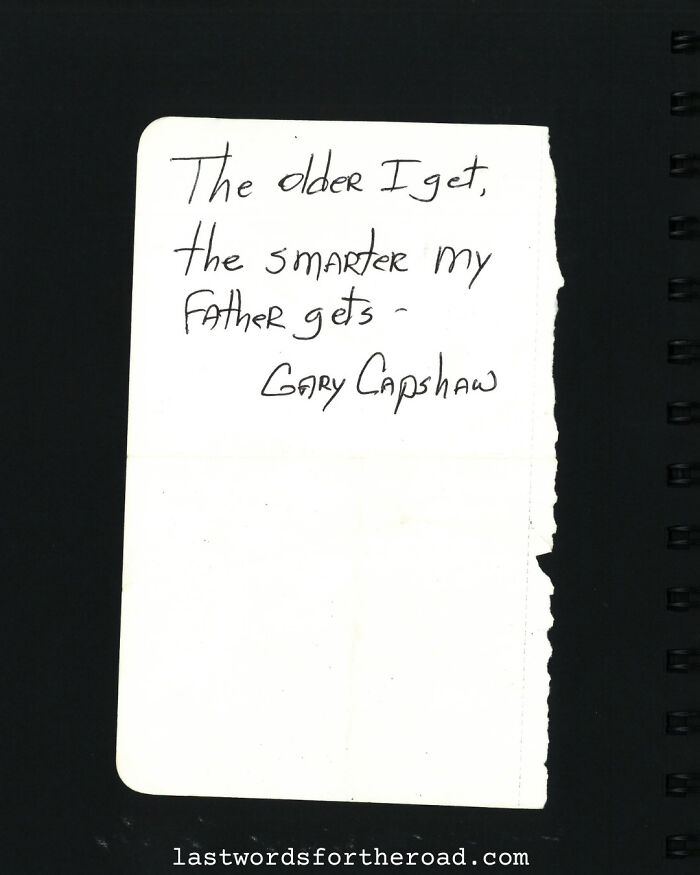 The older I get,
the smarter my
Father gets -
Gary Capshaw
lastwordsfortheroad.com